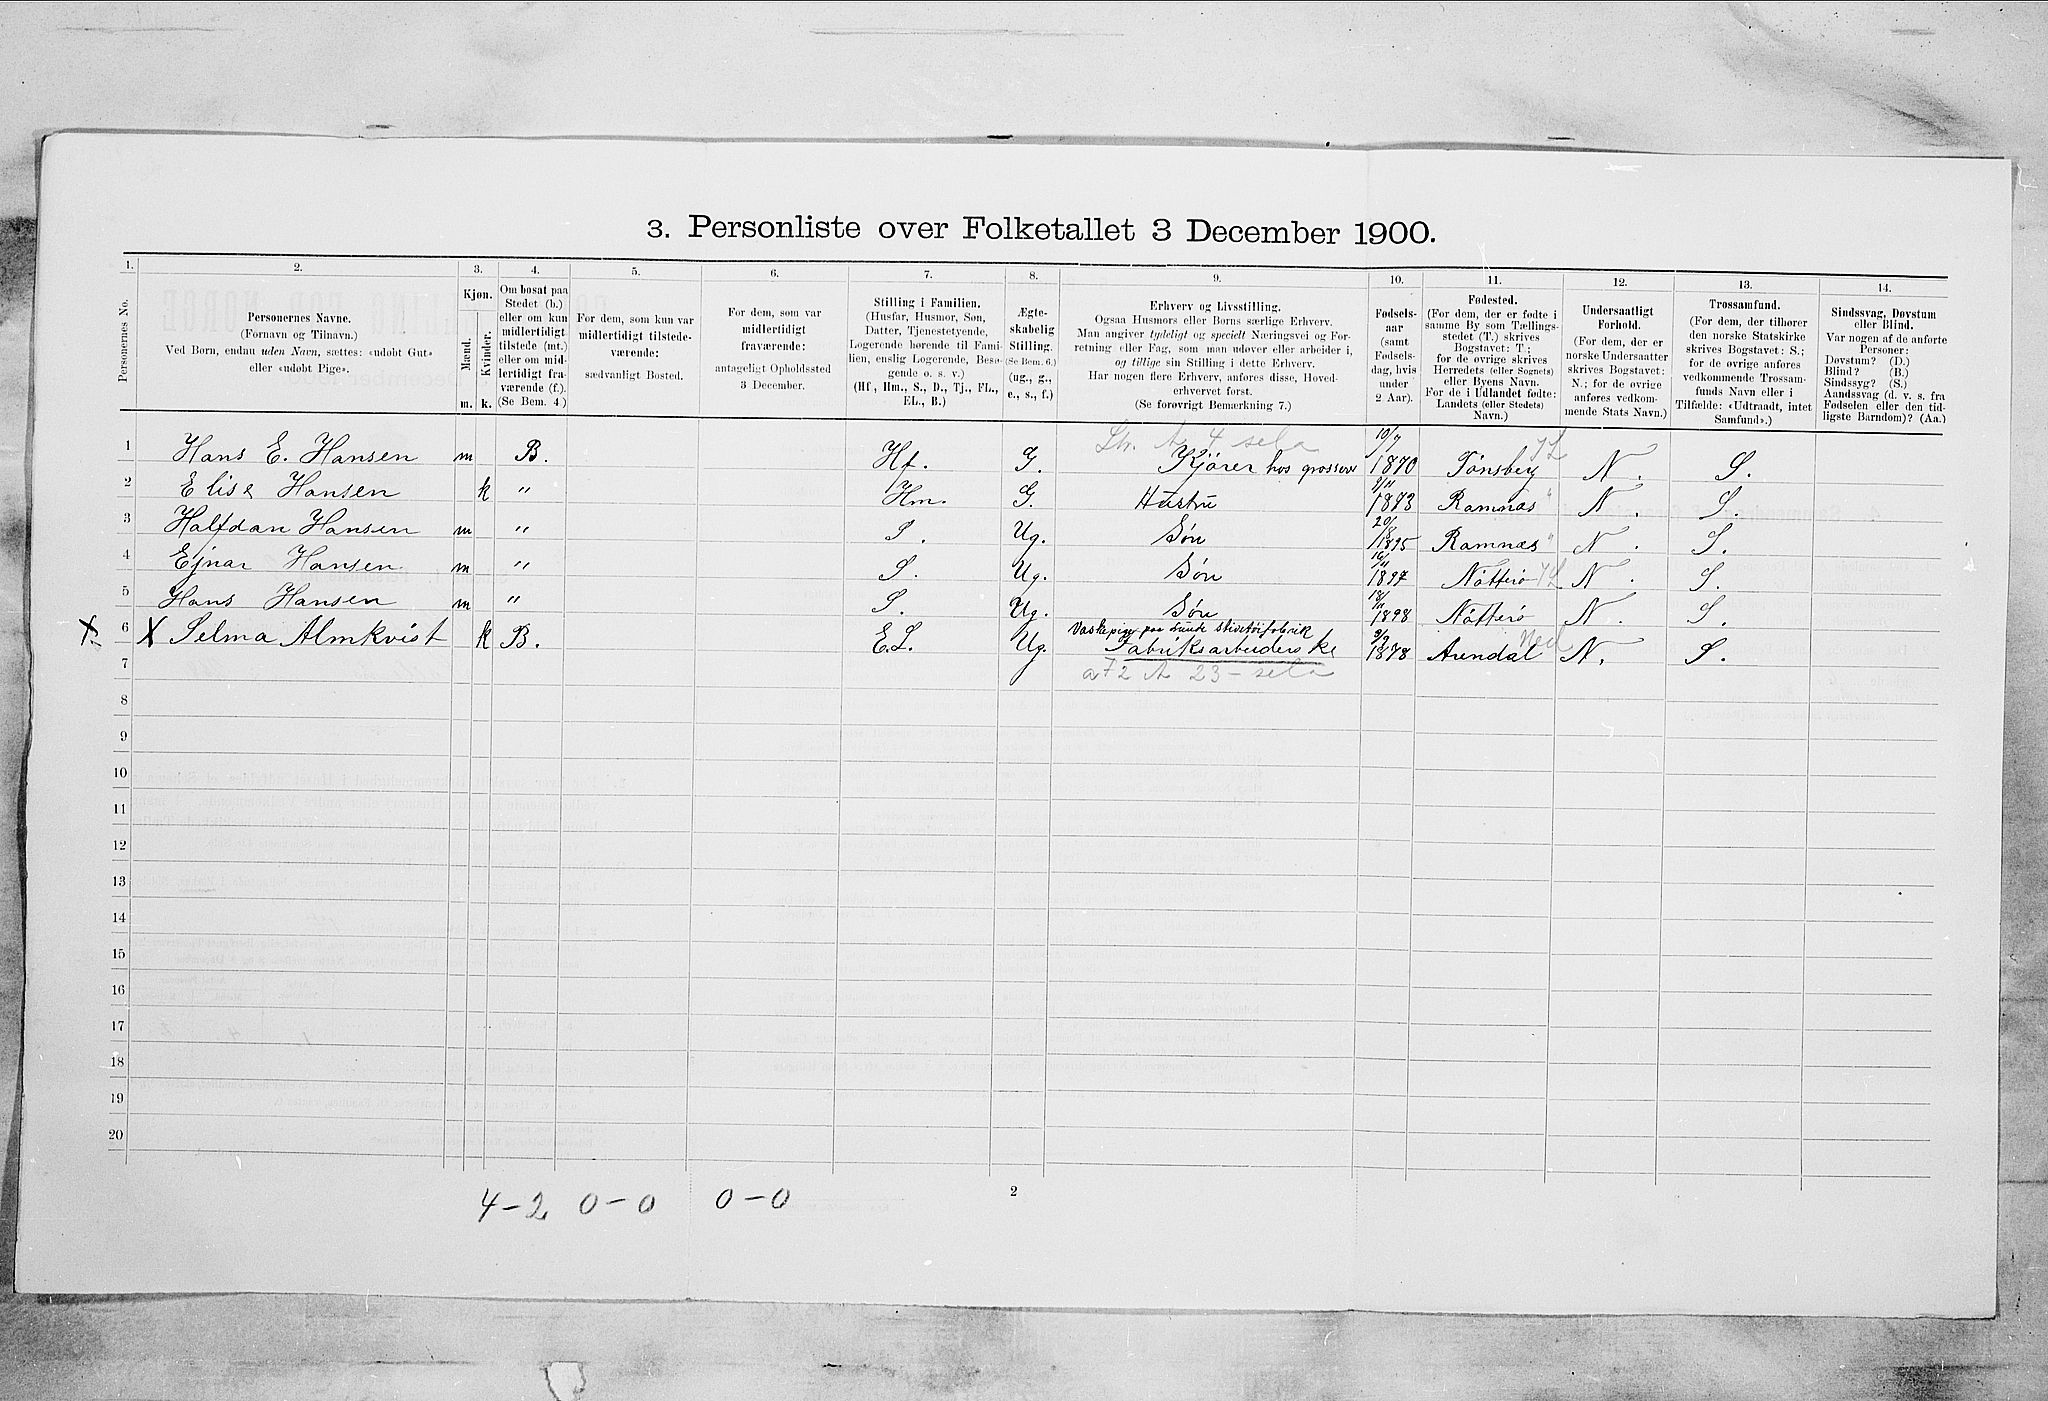 3. Personliste over Folketallet 3 December 1900.
1. 2. 3. 4. 5. 6. 7. 8. 9. 10. 11. 12. 13. 14.
Personernes No.
Personernes Navne.
(Fornavn og Tilnavn.)
Ved Børn, endnu uden Navn, sættes: «udøbt Gut»
eller «udøbt Pige».
Kjøn.
Mænd.
Kvinder.
m. k.
Om bosat paa
Stedet (b.)
eller om kun
midlertidigt
tilstede (mt.)
eller om mid-
lertidigt fra-
værende (f.).
(Se Bem. 4.)
For dem, som kun var
midlertidigt tilstede-
værende:
sædvanligt Bosted.
For dem, som var
midlertidigt
fraværende:
antageligt Opholdssted
3 December.
Stilling i Familien.
(Husfar, Husmor, Søn,
Datter, Tjenestetyende,
Logerende hørende til Fami-
lien, enslig Logerende, Besø-
gende o. s. v.)
(Hf, Hm., S., D., Tj., FL.,
EL., B.)
Ægte-
skabelig
Stilling.
(Se Bem. 6.)
(ug., g.,
e., s., f.)
Erhverv og Livsstilling.
Ogsaa Husmors eller Børns særlige Erhverv.
Man angiver tydeligt og specielt Næringsvei og For-
retning eller Fag, som man udøver eller arbeider i,
og tillige sin Stilling i dette Erhverv.
Har nogen flere Erhverv, anføres disse, Hoved-
erhvervet først.
(Se forøvrigt Bemærkning 7.)
Fødsels-
aar
(samt
Fødsels-
dag, hvis
under
2 Aar).
Fødested.
(For dem, der er fødte i
samme By som Tællings-
stedet (T.) skrives
Bogstavet: T.;
for de øvrige skrives
Herredets (eller Sognets)
eller Byens Navn.
For de i Udlandet fødte:
Landets (eller Stedets)
Navn.)
Undersaatligt
Forhold.
(For dem, der er
norske Undersaatter
skrives Bogstavet:
N.; for de øvrige
anføres vedkom-
mende Stats Navn.)
Trossamfund.
(For dem, der tilhører
den norske Statskirke
skrives Bogstavet: S.;
for de øvrige anføres
vedkommende Trossam-
funds Navn eller i
Tilfælde: «Udtraadt, intet
Samfund».)
Sindssvag, Døvstum
eller Blind.
Var nogen af de anførte
Personer:
Døvstum? (D.)
Blind? (B.)
Sindssyg? (S.)
Aandssvag (d. v. s. fra
Fødselen eller den tid-
ligste Barndom)? (Aa.)
1 Hans E. Hansen m B. Hf. G. Kjører hos grosserer 10/7 1870 Tønsberg N. S.
2 Elise Hansen k " Hm. G. Hustru 1873 Ramnæs N. S.
3 Halfdan Hansen m " S. Ug. Søn 20/8 1895 Ramnæs N. S.
4 Ejnar Hansen m " S. Ug. Søn 16/11 1897 Nøtterø N. S.
5 Hans Hansen m " S. Ug. Søn 18/11 1898 Nøtterø N. S.
Vaskepige paa Strivetøifabrik
X 6 X Selma Almkvist k B. E.L. Ug. Fabriksarbeiderske 9/9 1878 Arendal N. S.
7 a 72 A 23 - sela
8
9
10
11
12
13
14
15
16
17
18
19
20
4-2 0-0 0-0
2